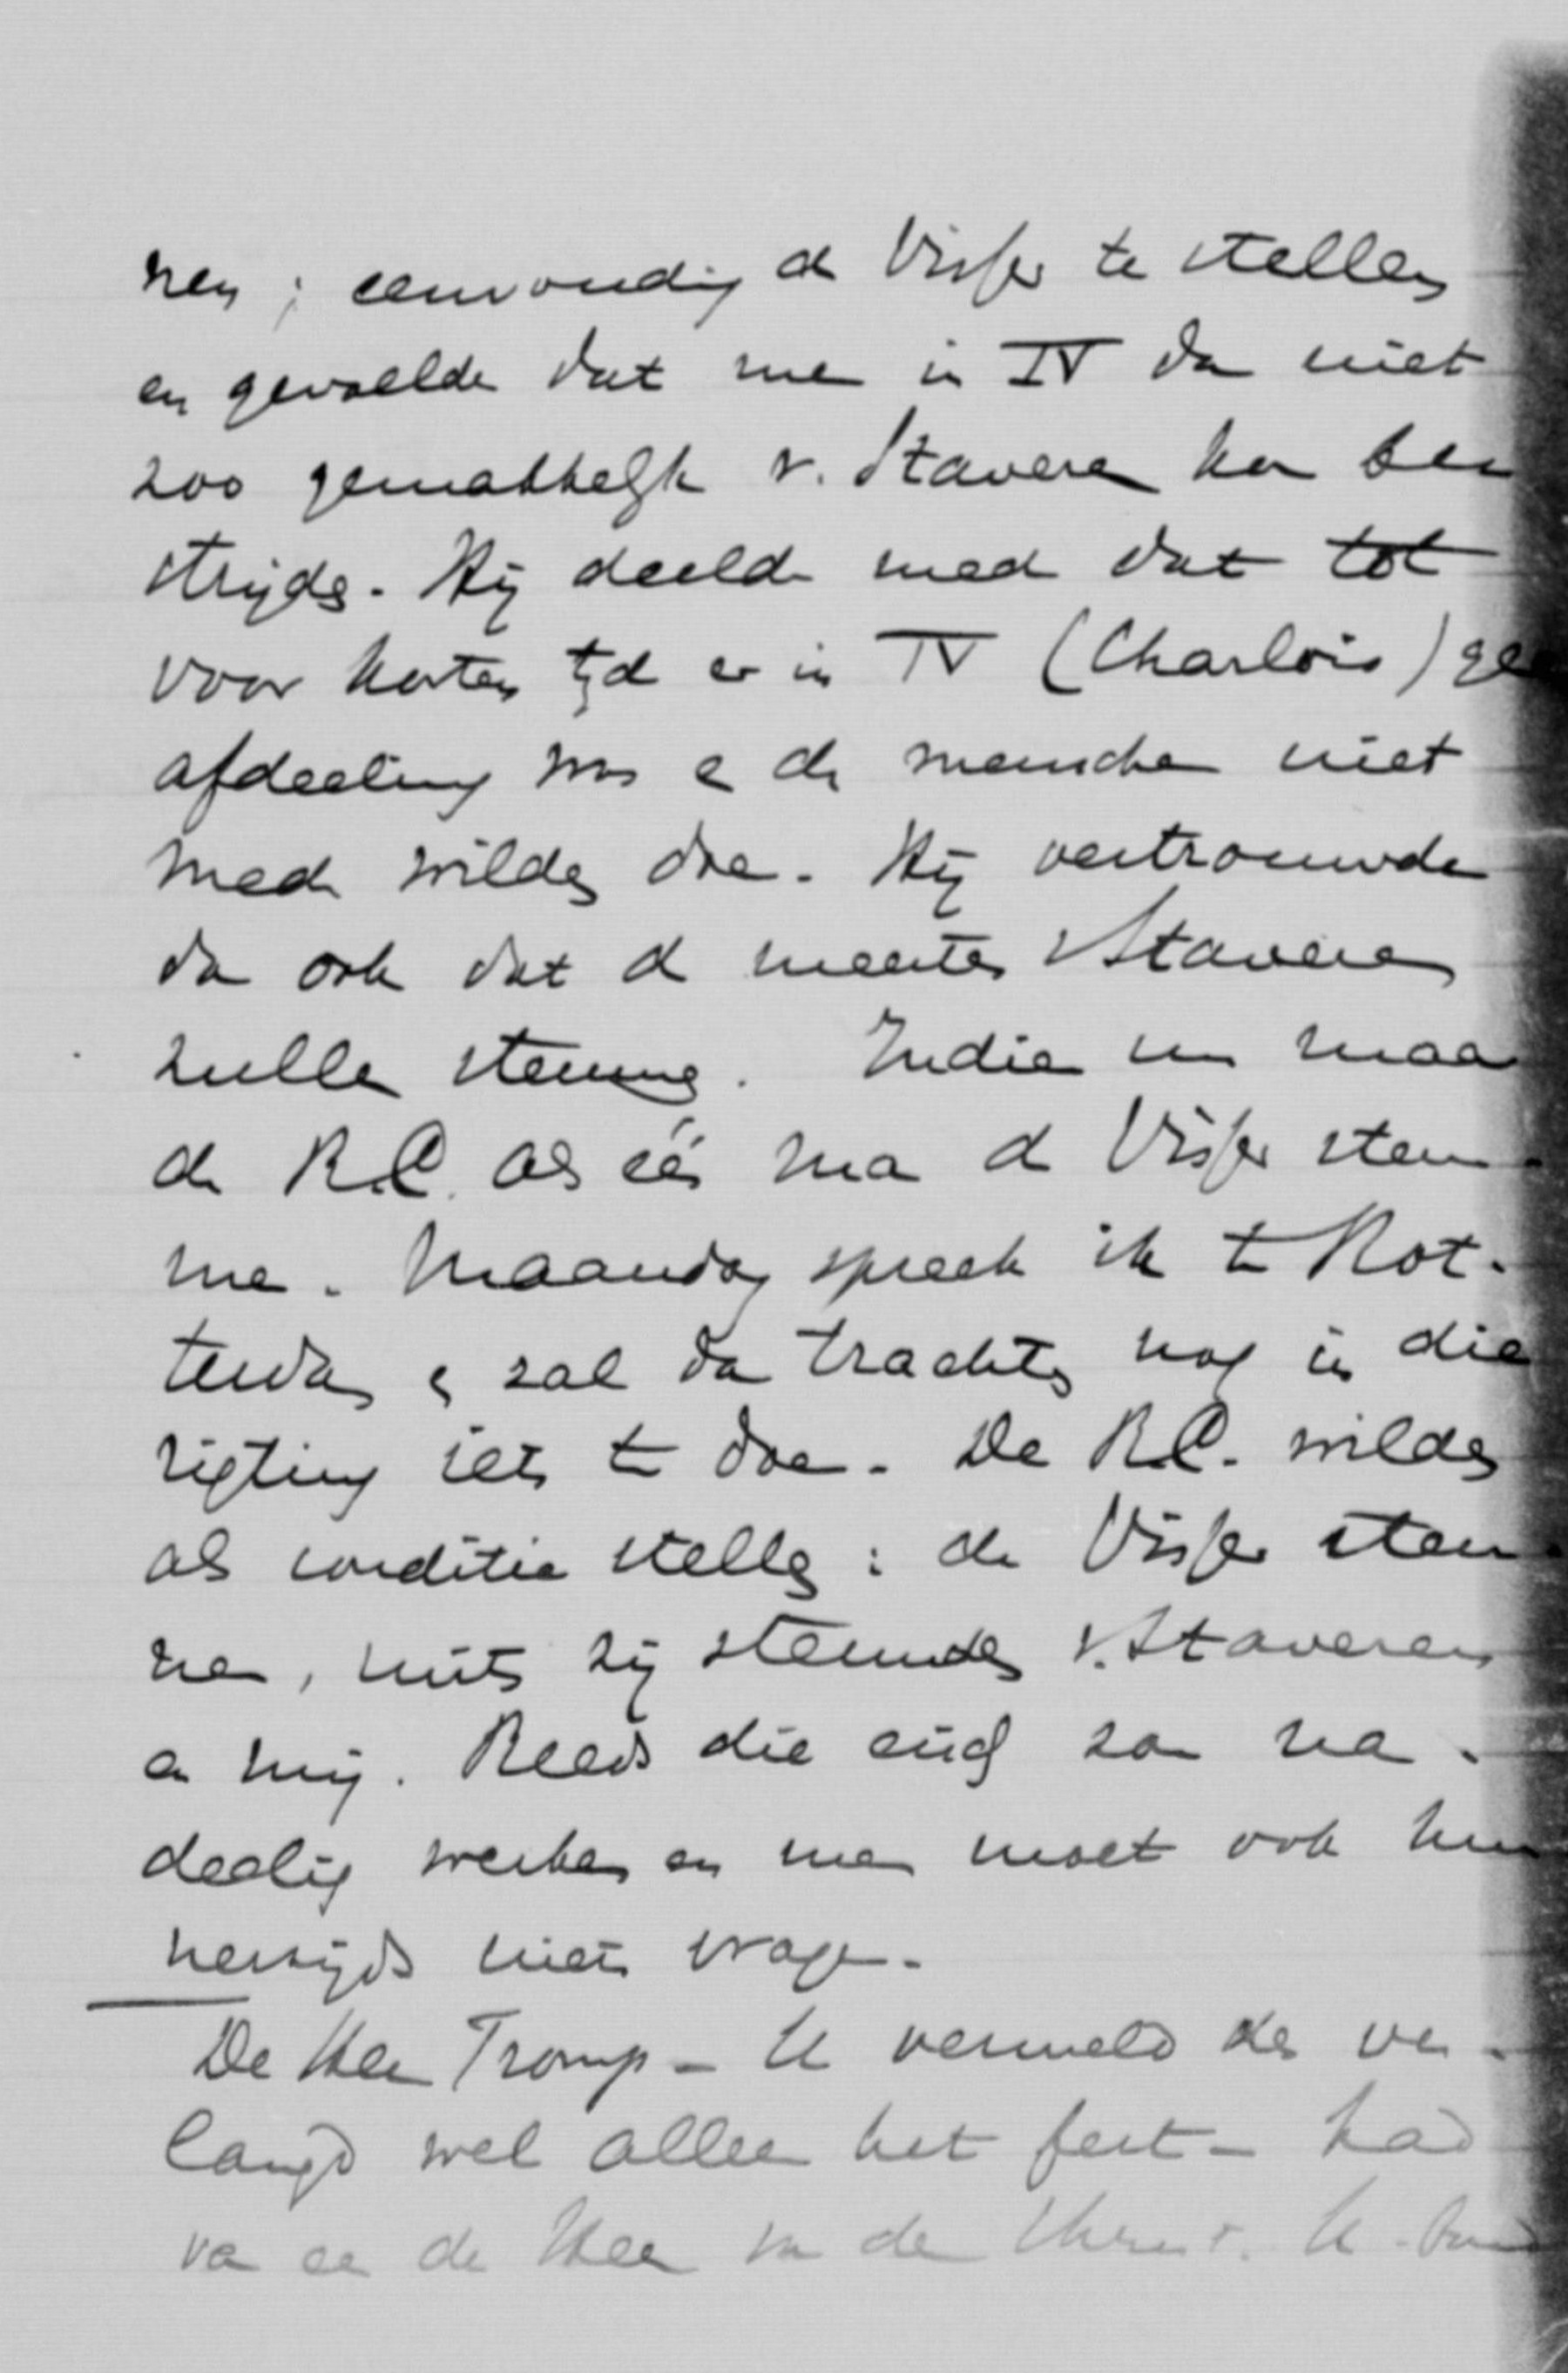 nen; eenvoudig de Visser te stellen
en gevoelde dat men in IV dan niet
zoo gemakkelijk v. Staveren kan bes
strijden. Hij deelde mede dat tot
voor korten tijd er in IV (Charlois) gee
afdeeling was en de menschen niet
mede wilden doen. Hij vertrouwde
dan ook dat de meesten v Staveren
zullen stemmen. Indien nu maar
de R.C. als één man de Visser stem-
men. Maandag spreek ik te Rot-
terdam en zal dan trachten nog in die
rigting iets te doen. De R.C. wilden
als conditie stellen: de Visser stem-
men, mits zij stemden v. Staveren
en mij. Reeds die eisch zou na-
deelig werken en men moet ook hun
nerzijds niets vragen.
De Heer Tromp - U vermeld des ver-
langd wel alleen het feit - had
van en de Heer van der U